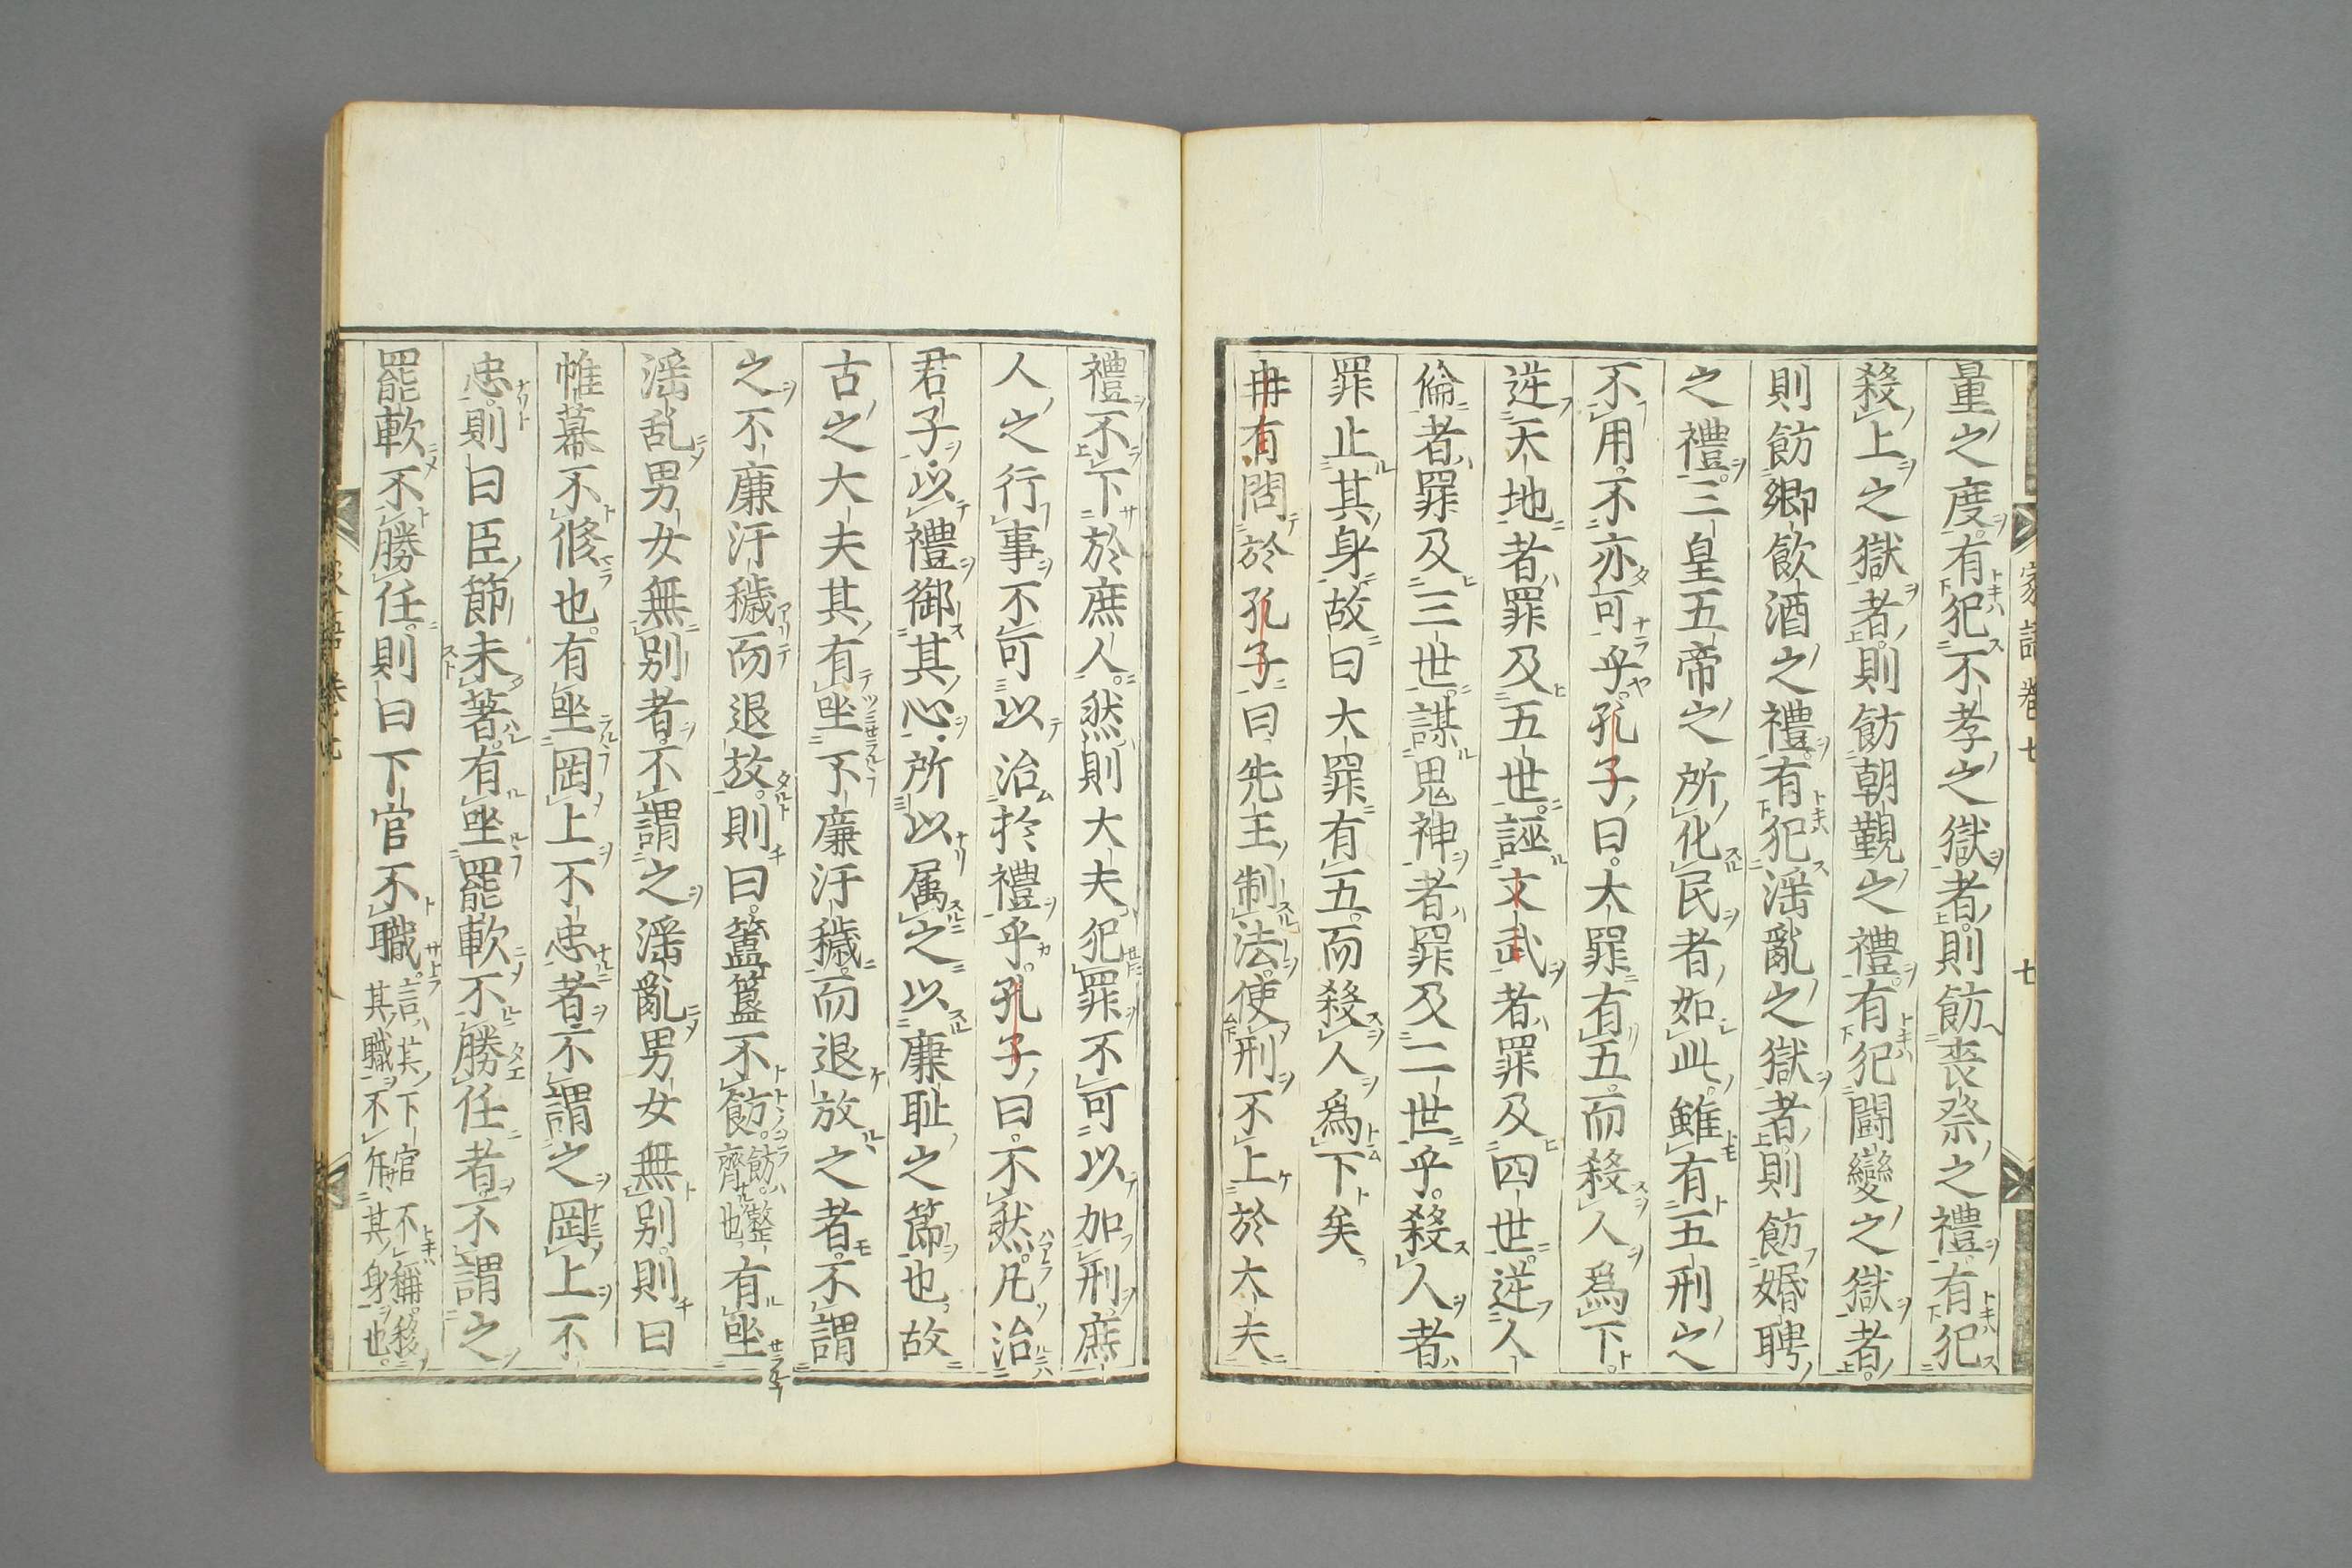 家語卷七 七
量之度有犯不孝之獄者則飭喪祭之禮有犯
殺上之獄者則飭朝覲之禮有犯鬪變之獄者
則飭鄉飲酒之禮有犯淫亂之獄者則飭婚聘
之禮三皇五帝之所化民者如此雖有五刑之
不用不亦可乎孔子曰大罪有五而殺人爲下
逆天地者罪及五世誣文武者罪及四世逆人
倫者罪及三世謀鬼神者罪及二世乎殺人者
罪止其身故曰大罪有五而殺人爲下矣
冉有問於孔子曰先王制法使刑不上於大夫
禮不下於庶人然則大夫犯罪不可以加刑庶
人之行事不可以治扵禮乎孔子曰不然凡治
君子以禮御其心所以属之以廉耻之節也故
古之大夫其有坐不廉汙穢而退放之者不謂
之不廉汙穢而退放則曰簠簋不飭飭整齊也有坐
淫乱男女無别者不謂之淫亂男女無别則曰
帷幕不修也有坐罔上不忠者不謂之罔上不
忠則曰臣節未著有坐罷軟不勝任者不謂之
罷軟不勝任則曰下官不職言其下官不稱移其職不斥其身也